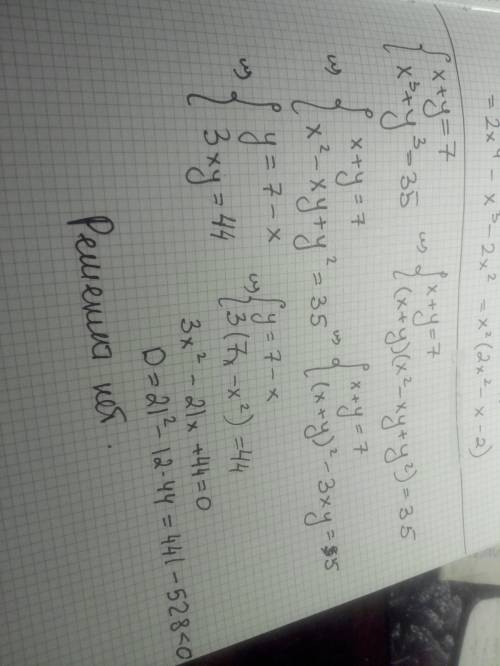 = 2x⁴ - x³ - 2x² = x²(2x² - x - 2)
{ x+y=7 ⇔ { x+y=7
x³+y³=35 (x+y)(x²-xy+y²)=35
⇔ { x+y=7 ⇔ { x+y=7
x²-xy+y²=35 (x+y)²-3xy=35
⇔ { y=7-x ⇔ { y=7-x
3xy=44 3(7x-x²)=44
3x²-21x+44=0
D=21²-12·44=441-528<0
Решения нет.